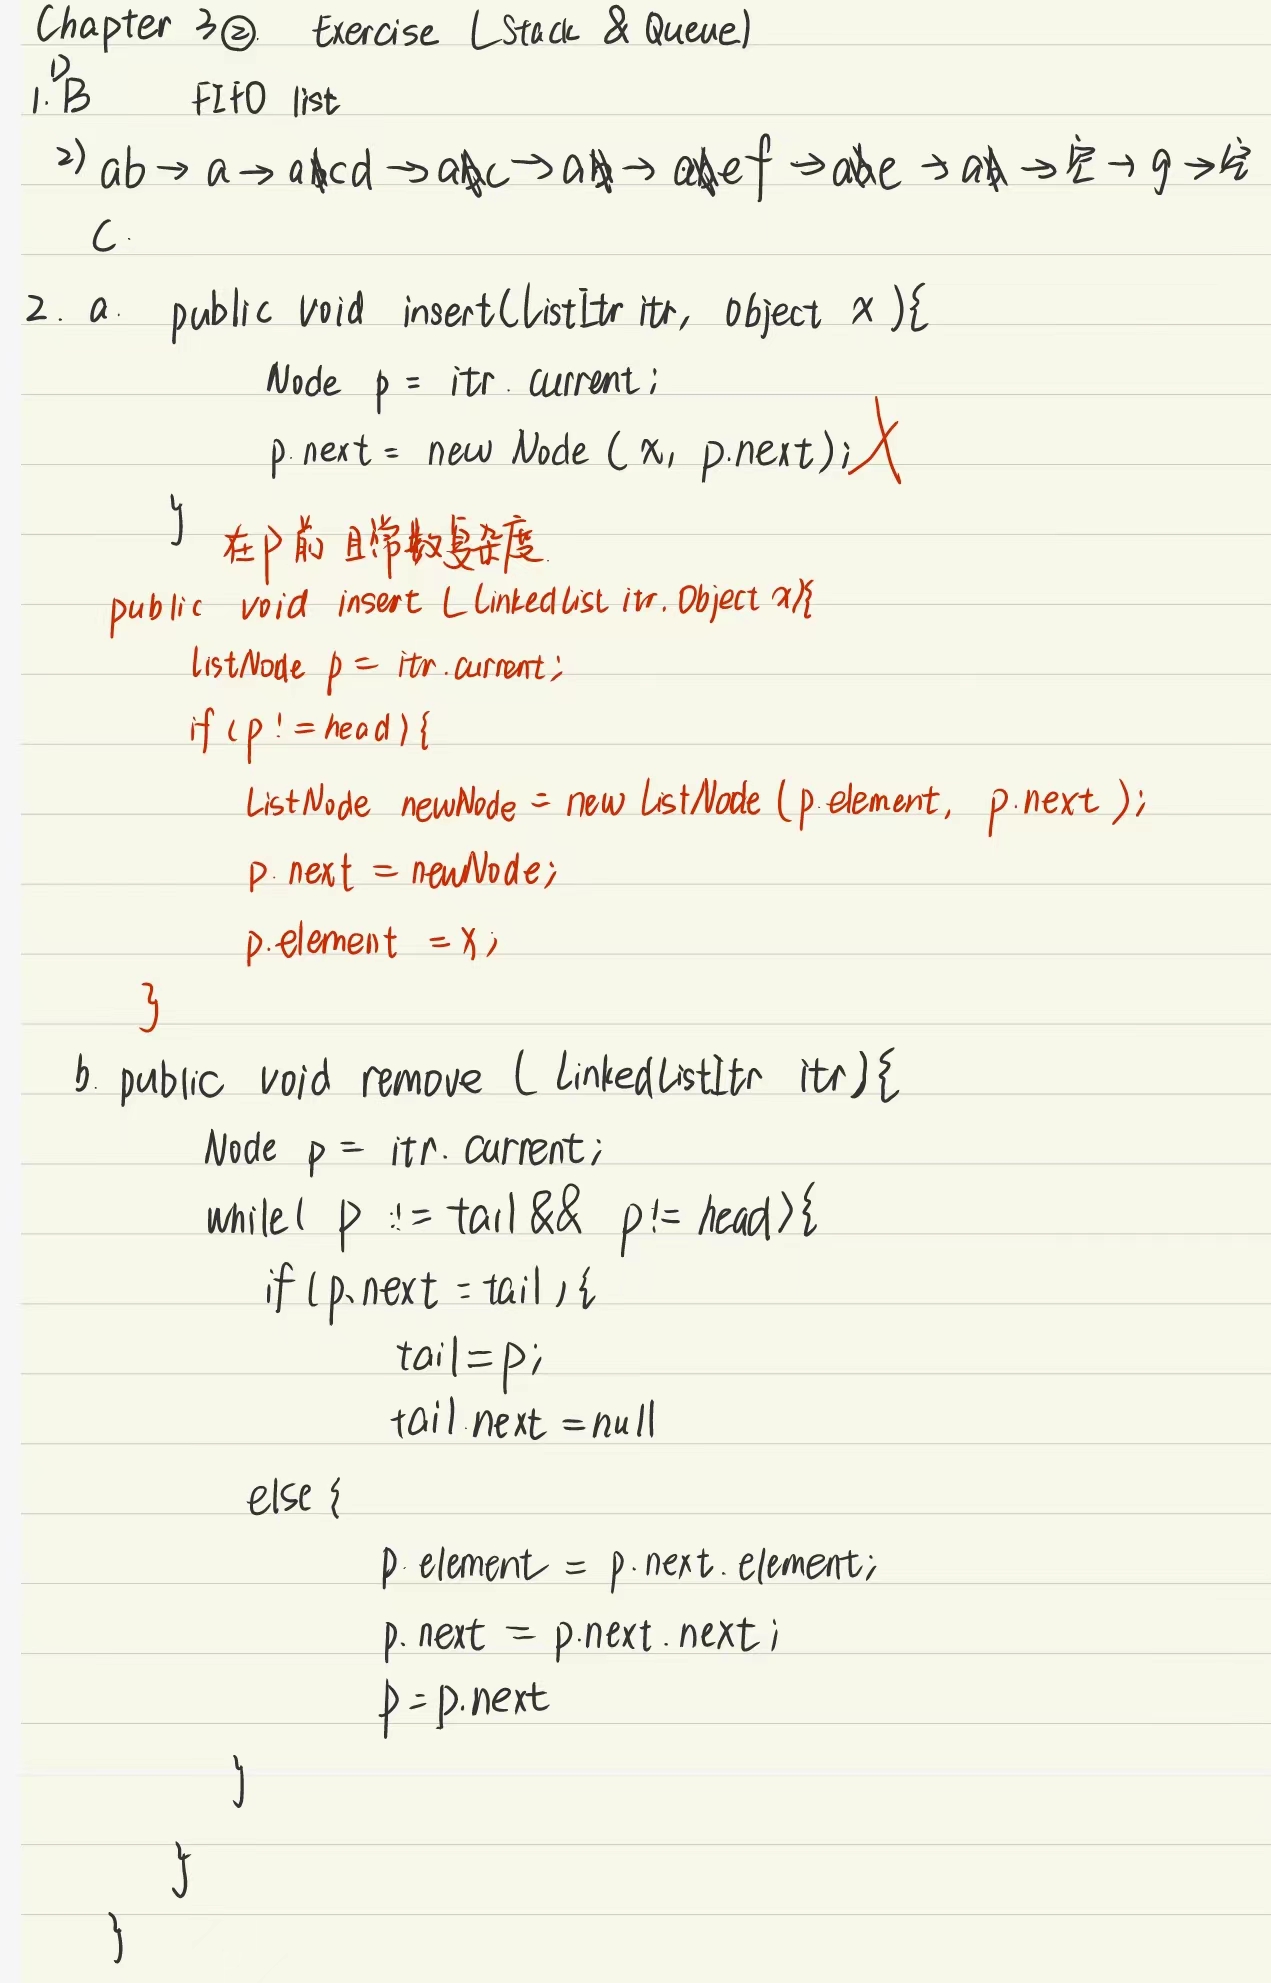 Chapter 3② Exercise (Stack & Queue)
1. 1) B FIFO list
2) ab → a → acd → ac → a → aef → ae → a → 空 → g → 空
C.
2. a. public void insert(ListItr itr, Object x){
Node p = itr.current;
p.next = new Node (x, p.next);
}
在p前 且常数复杂度.
public void insert (LinkedList itr. Object x){
listNode p = itr.current;
if (p != head) {
ListNode newNode = new ListNode (p.element, p.next);
p.next = newNode;
p.element = x;
}
b. public void remove (LinkedListItr itr){
Node p = itr.current;
while( p != tail && p != head){
if (p.next = tail){
tail = p;
tail.next = null
else {
p.element = p.next.element;
p.next = p.next.next;
p = p.next
}
}
}